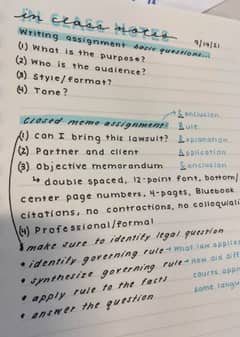 in class Notes
9/14/21
Writing assignment basic questions...
(1) What is the purpose?
(2) Who is the audience?
(3) Style/format?
(4) Tone?
closed memo assignment
Conclusion
Rule
Explanation
Application
Conclusion
(1) Can I bring this lawsuit?
(2) Partner and client
(3) Objective memorandum
↳ double spaced, 12-point font, bottom/
center page numbers, 4-pages, Bluebook
citations, no contractions, no colloquiali
(4) Professional/formal
make sure to identify legal question
• identify governing rule → what law applies
• synthesize governing rule → how did diff
courts appl
same langu
• apply rule to the facts
• answer the question